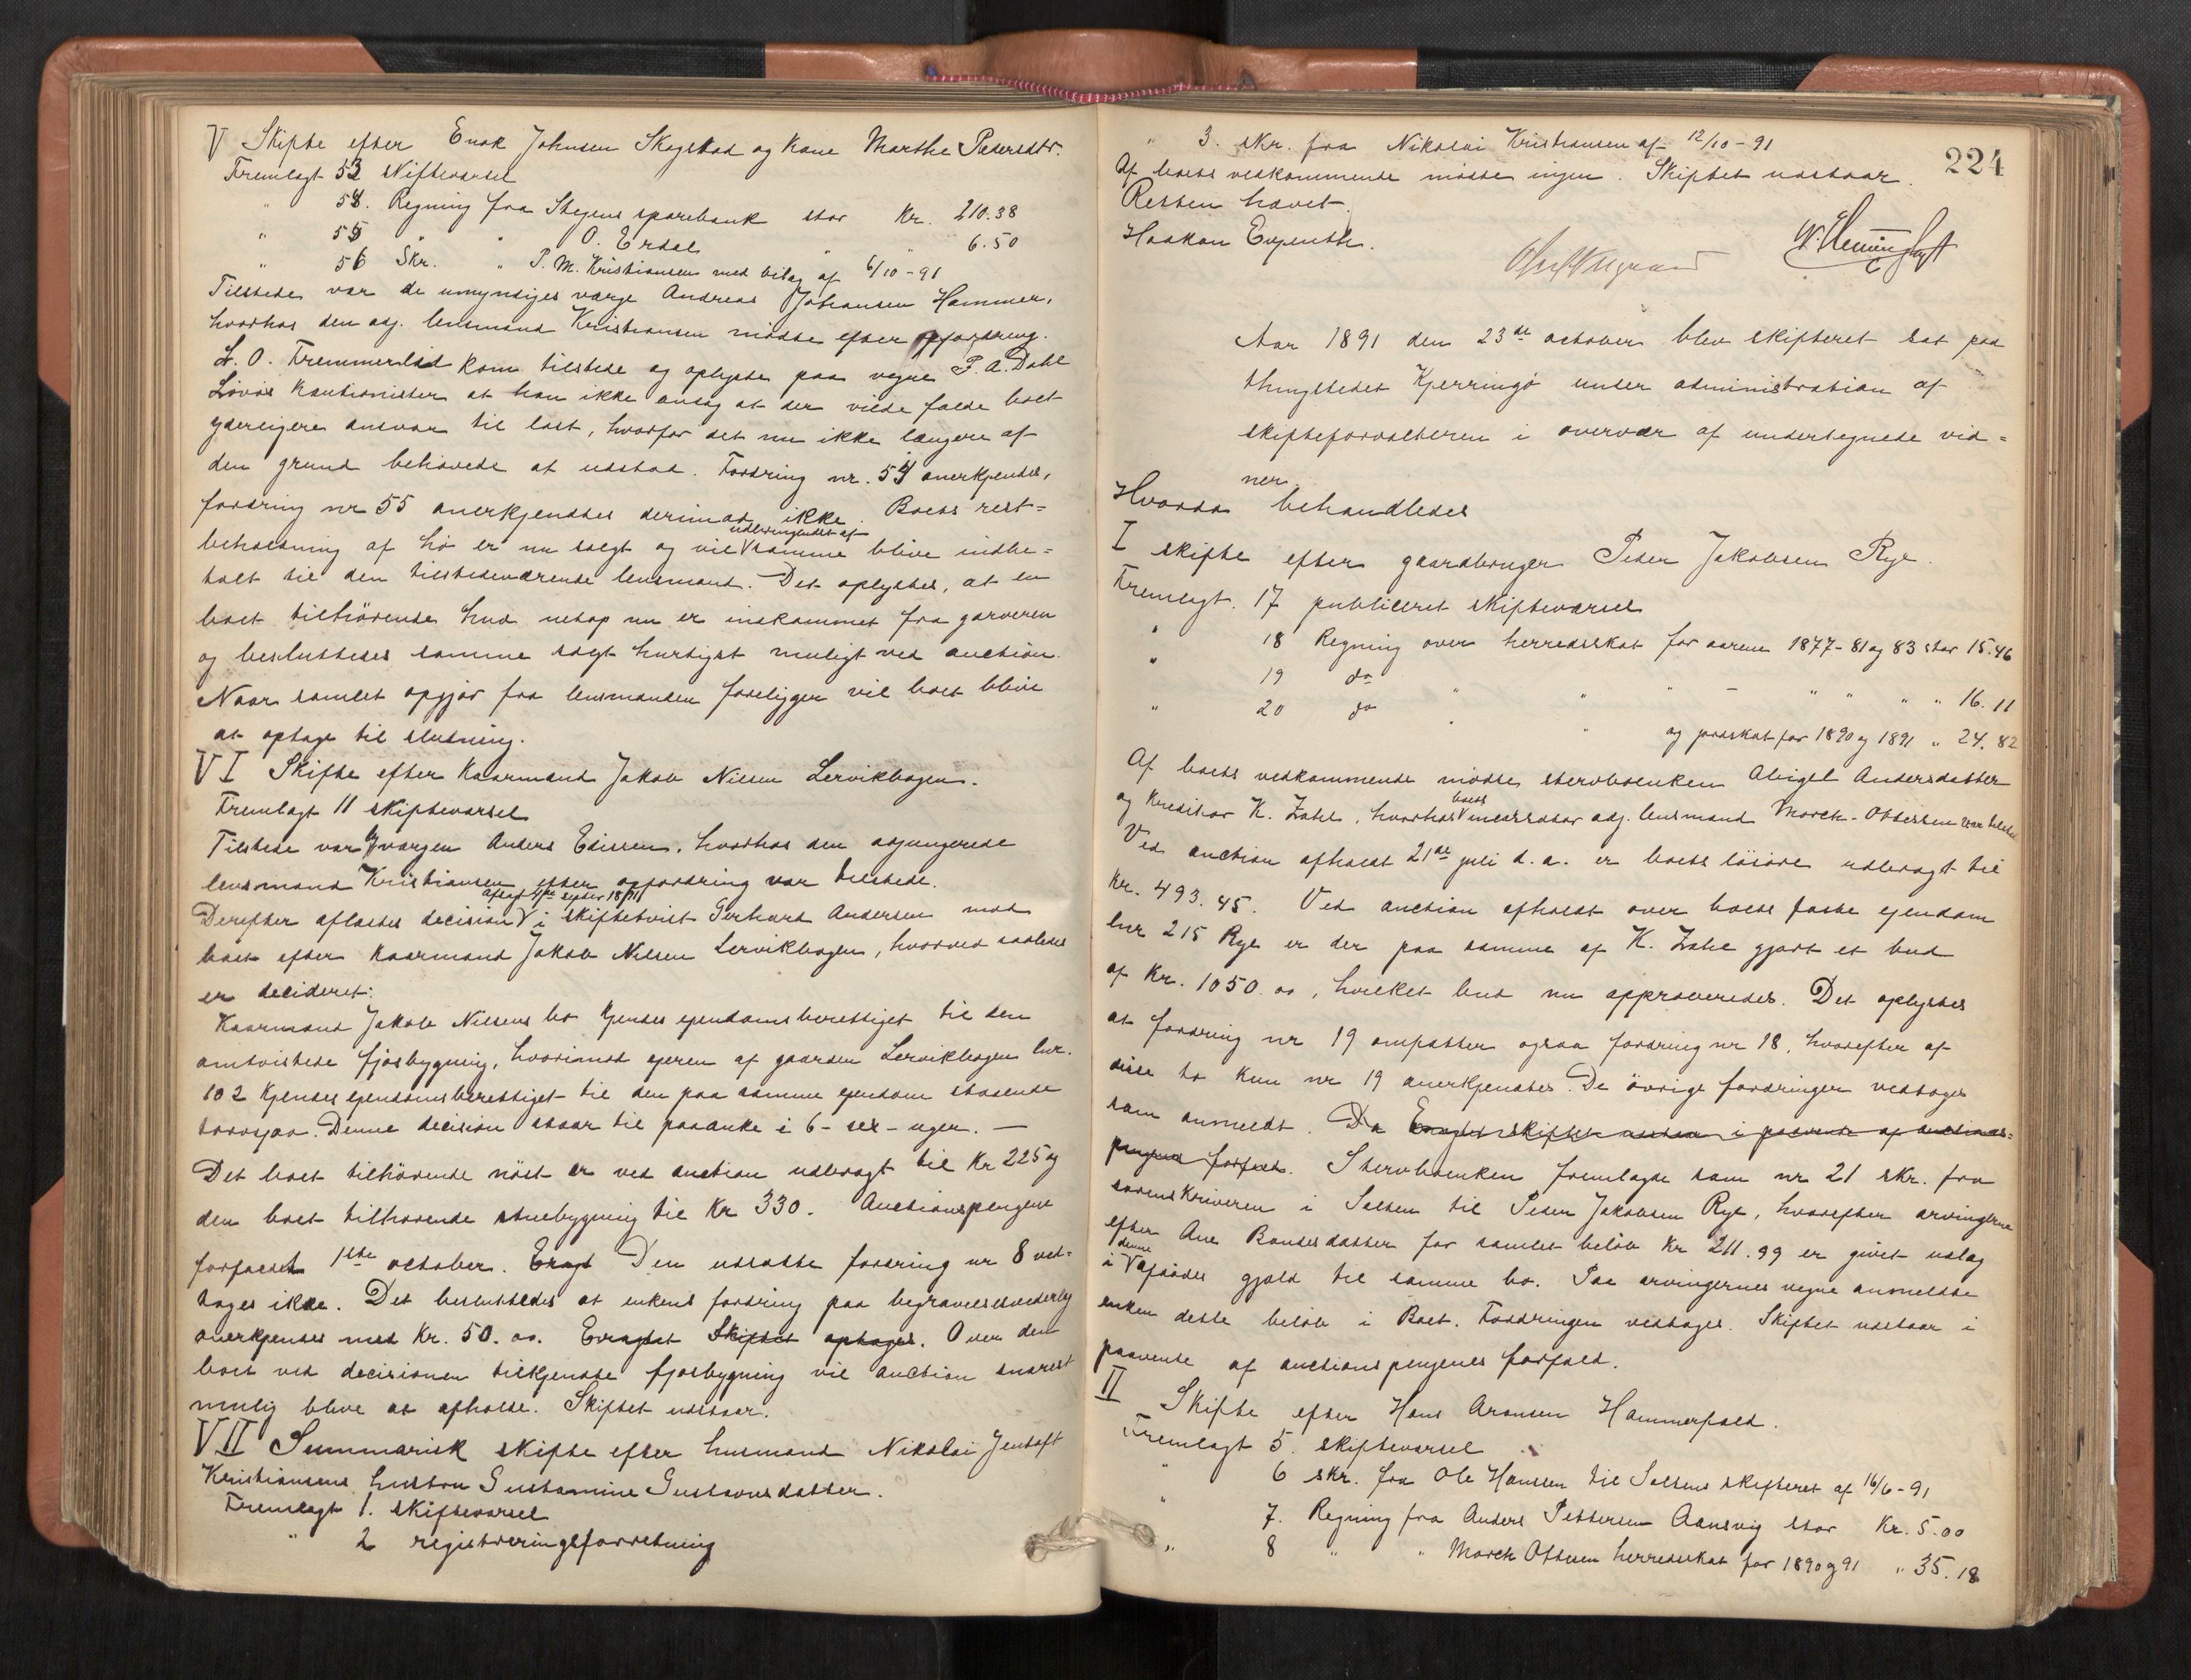 V Skifte efter Enok Johnsen Skogstad og kone Marthe Pedersdtr.
Fremlagt 53 skiftevarsel
" 54. Regning fra Stegens sparebank stor Kr. 210.38
" 55 " " O. Erdal " " 6.50
" 56 Skr. " P. M. Kristiansen med bilag af 6/10-91
Tilstede var de umyndiges værge Andreas Johansen Hammer,
hvorhos den adj. lensmand Kristiansen mødte efter opfordring.
L. O. Kremmerlid kom tilstede og oplyste paa vegne P. A. Dahl
Løvøs kautionister at han ikke ansaa at der vilde falde boet
yderligere ansvar til last, hvorfor det nu ikke længere af
den grund behøvede at udstaa. Fordring nr. 54 anerkjendtes,
fordring nr 55 anerkjendtes derimod ikke. Boets rest=
udbringendet af
beholdning af hø er nu solgt og vil samme blive indbe=
talt til den tilstedeværende lensmand. Det oplystes, at en
boet tilhørende hud netop nu er indkommet fra garveren
og besluttedes samme solgt hurtigst muligt ved auction.
Naar samlet opgjør fra lensmanden foreligger vil boet blive
at optage til slutning.
VI Skifte efter kaarmand Jakob Nilsen Lervikhagen.
Fremlagt 11 skiftevarsel
Tilstede var værgen Anders Edissen, hvorhos den adjungerede
lensmand Kristiansen efter opfordring var tilstede.
afsagt 4de septbr 1891
Derefter aflæstes decision i skiftetvist Gerhard Andersen mod
boet efter kaarmand Jakob Nilsen Lervikhagen, hvorved saaledes
er decideret:
Kaarmand Jakob Nilsens bo kjendes eiendomsberettiget til den
omtvistede fjøsbygning, hvorimod eieren af gaarden Lervikhagen lnr.
102 kjendes eiendomsberettiget til den paa samme eiendom staaende
torvsjaa. Denne decision staar til paaanke i 6 - sex - uger. —
Det boet tilhørende nøst er ved auction udbragt til Kr 225 og
den boet tilhørende stuebygning til Kr 330. Auctionspengene
forfaldt 1ste october. Eragt Den udsatte fordring nr 8 ved=
toges ikke. Det besluttedes at enkens fordring paa begravelsesvederlag
anerkjendes med Kr. 50.00. Eragtet Skiftet optages. Over den
boet ved decisionen tilkjendte fjøsbygning vil auction snarest
mulig blive at afholde. Skiftet udstaar.
VII Summarisk skifte efter husmand Nikolai Jentoft
Kristiansens hustru Gustamine Gustavsdatter.
Fremlagt 1. skiftevarsel
" 2 registreringsforretning
224
" 3. skr. fra Nikolai Kristiansen af 12/10-91
Af boets vedkommende mødte ingen. Skiftet udstaar.
Retten hævet.
Haakon Evjenth.
Aar 1891 den 23de october blev skifteret sat paa
thingstedet Kjerringø under administration af
skifteforvalteren i overvær af undertegnede vid=
ner.
Hvorda behandledes
I skifte efter gaardbruger Peder Jakobsen Rye.
Fremlagt. 17 publiceret skiftevarsel
" 18 Regning over herredsskat for aarene 1877-81 og 83 stor 15.46
" 19 do " " " — " " " " 16.11
" 20 do " " og jordskat for 1890 og 1891 " 24.82
Af boets vedkommende mødte stervboenken Abigel Andersdatter
boets
og kreditor K. Zahl, hvorhos incassator adj. lensmand Morck-Ottessen var tilstede
Ved auction afholdt 21de juli d.a. er boets løsøre udbragt til
Kr. 493.45. Ved auction afholdt over boets faste eiendom
lnr 215 Rye er der paa samme af K. Zahl gjort et bud
af Kr. 1050.00, hvilket bud nu approberedes. Det oplystes
at fordring nr 19 omfatter ogsaa fordring nr 18, hvorefter af
disse to kun nr 19 anerkjendtes. De øvrige fordringer vedtoges
som anmeldt. Da Eragtet skiftet udstaa i paavente af auctions=
pengenes forfald. Stervboenken fremlagde som nr 21 skr. fra
sorenskriveren i Salten til Peder Jakobsen Rye, hvorefter arvingerne
efter Ane Bantsdatter for samlet beløb Kr 211.99 er givet udlæg
denne
i afdødes gjæld til samme bo. Paa arvingernes vegne anmeldte
enken dette beløb i Boet. Fordringen vedtoges. Skiftet udstaar i
paavente af auctionspengenes forfald.
II Skifte efter Hans Aronsen Hammerfald.
Fremlagt 5. skiftevarsel
" 6 skr. fra Ole Hansen til Saltens skifteret af 16/6-91
" 7. Regning fra Anders Pettersen Aansvig stor Kr. 5.00
" 8 " " Morck Ottesen herredsskat for 1890 og 91 " 35.18